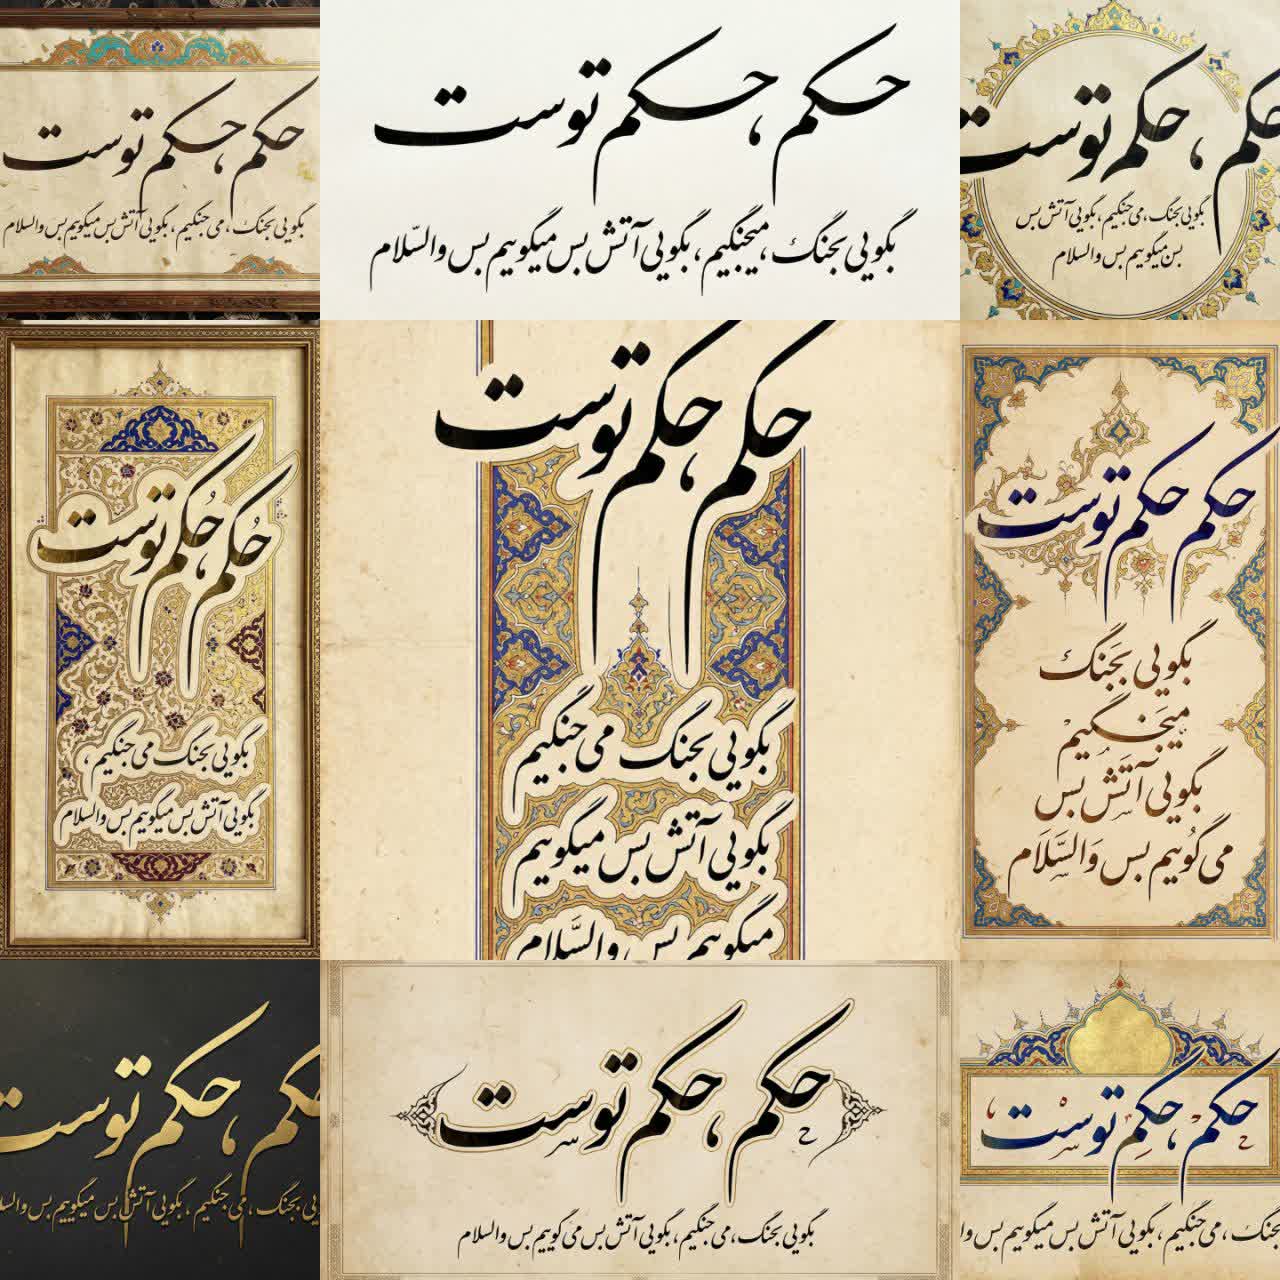 حکم، حکم توست
بگویی بجنگ، می‌جنگیم، بگویی آتش بس میگوییم بس والسلام
حکم، حکم توست
بگویی بجنگ، میجنگیم، بگویی آتش بس میگوییم بس والسّلام
حکم، حکم توست
بگویی بجنگ، می‌جنگیم، بگویی آتش بس
بس میگوییم بس والسلام
حُکم، حُکم توست
بگویی بجنگ می جنگیم،
بگویی آتش بس میگوییم بس والسلام
حکم، حکم توست
بگویی بجنگ می جنگیم
بگویی آتش بس میگوییم
میگوییم بس والسّلام
حکم حکم توست
بگویی بجَنگ
میجَنگیم
بگویی آتَش بَس
می گُوییم بس وَالسَّلَام
حکم، حکم توست
بجنگ، می جنگیم، بگویی آتش بس میگوییم بس
حکم، حکم توست
بگویی بجنگ، می جنگیم، بگویی آتش بس می گوییم بس والسلام
حکم، حکم توست
می جنگیم، بگویی آتش بس میگوییم بس